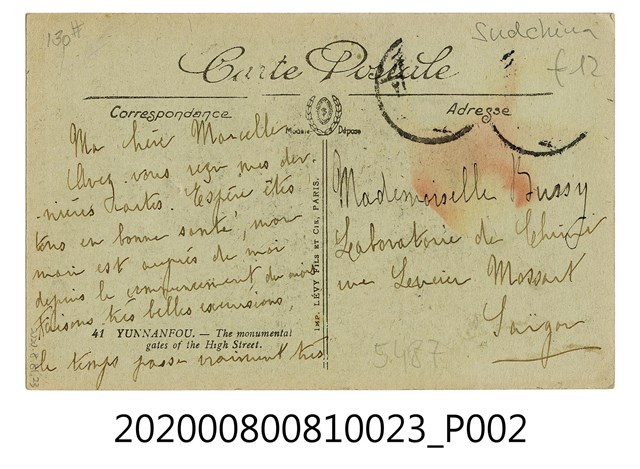 130#
Sudchina
£12
Carte Postale
Correspondance
Adresse
Modèle Déposé
Ma chère Marcelle
Avez vous reçu mes der-
nières cartes. Espère êtes
tous en bonne santé, mon
mari est auprès de moi
depuis le commencement du mois
faisons très belles excursions,
le temps passe vraiment très
41 YUNNANFOU. — The monumental
gates of the High Street.
IMP. LÉVY FILS ET CIE, PARIS.
Mademoiselle Bussy
Laboratoire de Chimie
rue Mossard
Saïgon
5487
202000800810023_P002